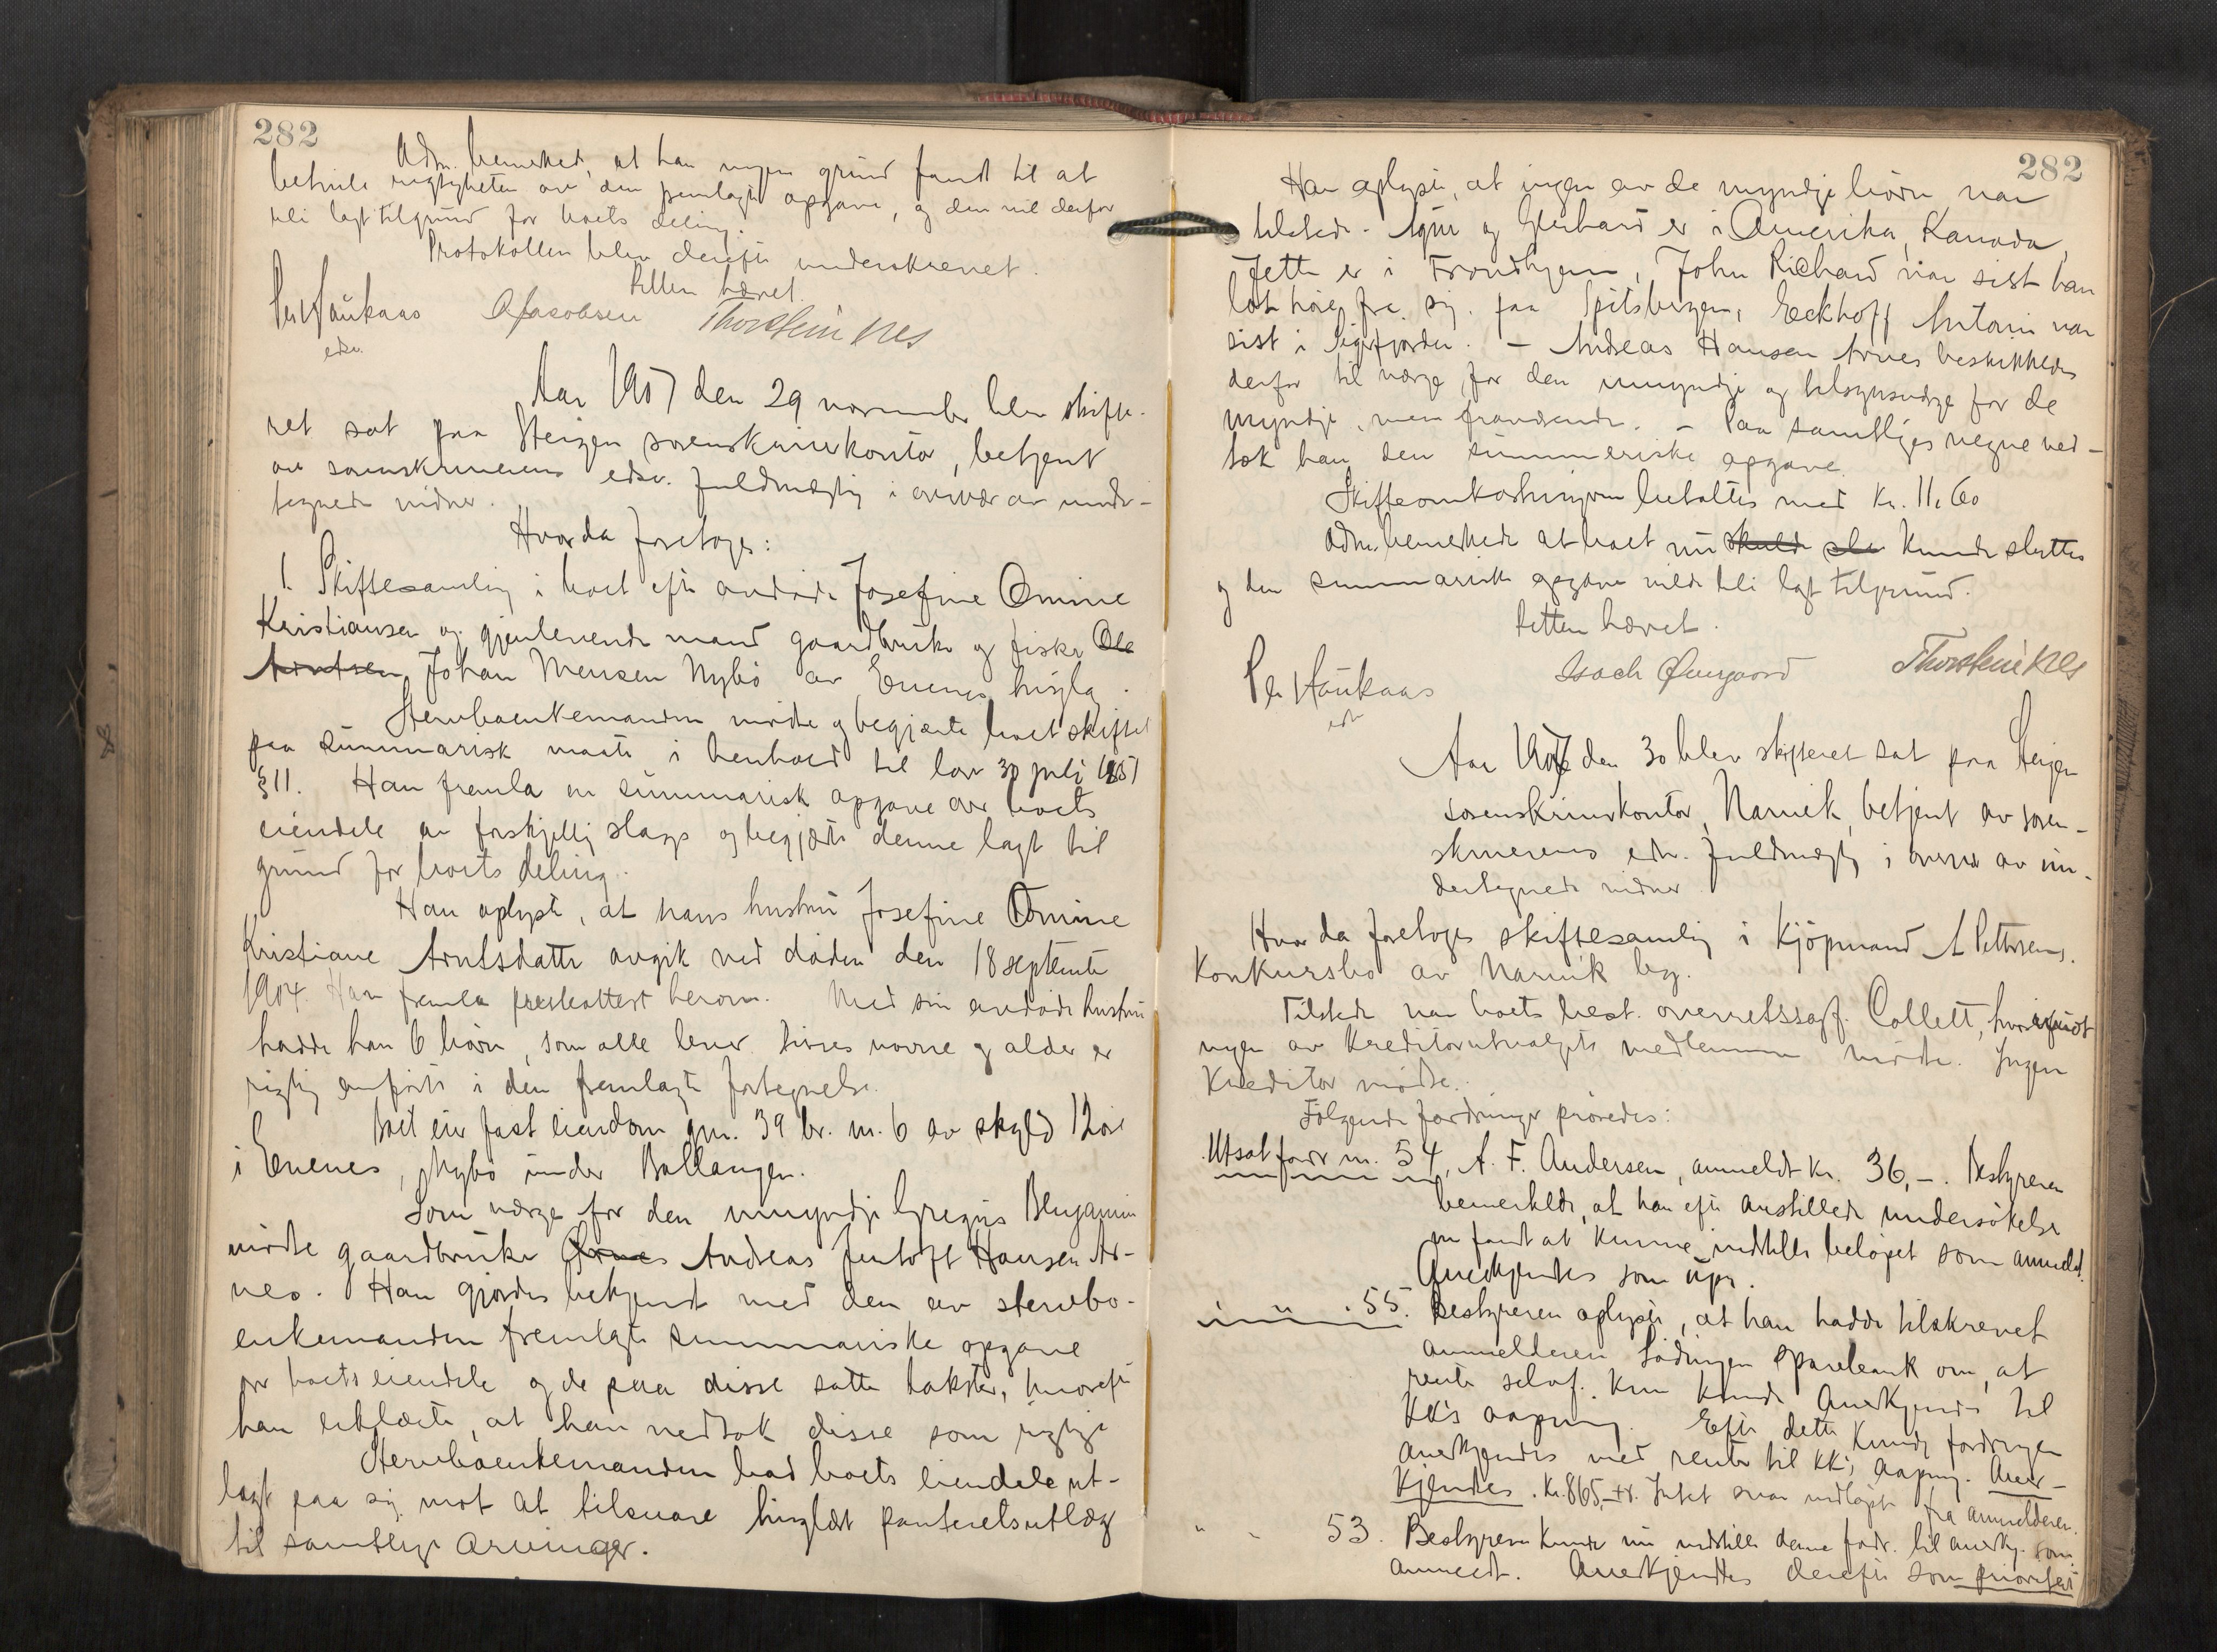 282
Adm. bemerket, at han ingen grund fandt til at
betvile rigtigheten av den fremlagte opgave, og den vil derfor
bli lagt til grund for boets deling.
Protokollen blev derefter underskrevet.
Retten hævet.
Per Haukaas O Jacobsen Thorstein Nes
edsv.
Aar 1907 den 29 november blev skifte-
ret sat paa Steigen sorenskriverkontor, betjent
av sorenskriverens edsv. fuldmægtig i overvær av under-
tegnede vidner.
Hvor da foretoges:
1. Skiftesamling i boet efter avdøde Josefine Omine
Kristiansen og gjenlevende mand gaardbruker og fisker Ole
Arntsen Johan Mensen Nybø av Evenes tinglag.
Stervboenkemanden møtte og begjærte boet skiftet
paa summarisk maate i henhold til lov 30 juli 1851
§ 11. Han fremla en summarisk opgave over boets
eiendele av forskjellig slags og begjærte denne lagt til
grund for boets deling.
Han oplyste, at hans hustru Josefine Omine
Kristiane Arntsdatter avgik ved døden den 18 september
1904. Han fremla presteattest herom. Med sin avdøde hustru
hadde han 6 børn, som alle lever. Disses navne og alder er
rigtig anført i den fremlagte fortegnelse.
Boet eier fast eiendom gnr. 39 br. nr. 6 av skyld 12 øre
i Evenes, Nybø under Ballangen.
Som værge for den umyndige Gregus Benjamin
møtte gaardbruker Arnes Andreas Jentoft Hansen Ar-
nes. Han gjordes bekjendt med den av stervbo-
enkemanden fremlagte summariske opgave
over boets eiendele og de paa disse satte takster, hvorefter
han erklærte, at han vedtok disse som rigtige
Stervboenkemanden bad boets eiendele ut-
lagt paa sig mot at tilsvare tinglæst panteretsutlæg
til samtlige arvinger.
282
Han oplyste, at ingen av de myndige børn var
tilstede. og Gerhard er i Amerika, Kanada,
Jette er i Trondhjem, John Richard var sist han
lot høre fra sig paa Spitsbergen, Eckhoff Antoni var
sist i Sigerfjorden. – Andreas Hansen Arnes beskikkedes
derfor til værge for den umyndige og tilsynsværge for de
myndige, men fraværende. – Paa samtliges vegne ved-
tok han den summariske opgave.
Skifteomkostningerne betaltes med Kr. 11,60
Adm. bemerkede at boet nu skulde slu kunde sluttes
og den summariske opgave vilde bli lagt til grund.
Retten hævet.
Per Haukaas Isach Øvergaard Thorstein Nes
edsv
Aar 1907 den 30 blev skifteret sat paa Steigen
sorenskriverkontor, Narvik, betjent av soren-
skriverens edsv. fuldmægtig i overvær av un-
dertegnede vidner
Hvor da foretoges skiftesamling i kjøpmand A Pettersens
Konkursbo av Narvik by.
Tilstede var boets best. overretssagf. Collett, hvorimot
ingen av kreditorutvalgets medlemmer møtte. Ingen
kreditor møtte.
Følgende fordringer prøvedes:
Utsat fordr nr. 54, A. F. Andersen, anmeldt kr. 36,–. Bestyreren
bemerkede, at han efter anstillede undersøkelser
nu fandt at kunne indstille beløpet som anmeldt.
Anerkjendtes som upr.
" " 55. Bestyreren oplyste, at han hadde tilskrevet
anmelderen Lødingen sparebank om, at
renter selvf. kun kunde anerkjendes til
KK's aapning. Efter dette kunde fordringen
anerkjendes med renter til KK's aapning. Aner-
kjendtes. Kr. 865,–. Intet svar indløpet fra anmelderen.
" " 53. Bestyreren kunde nu indstille denne fordr. til anerkj. som
anmeldt. Anerkjendtes derefter som prioritert